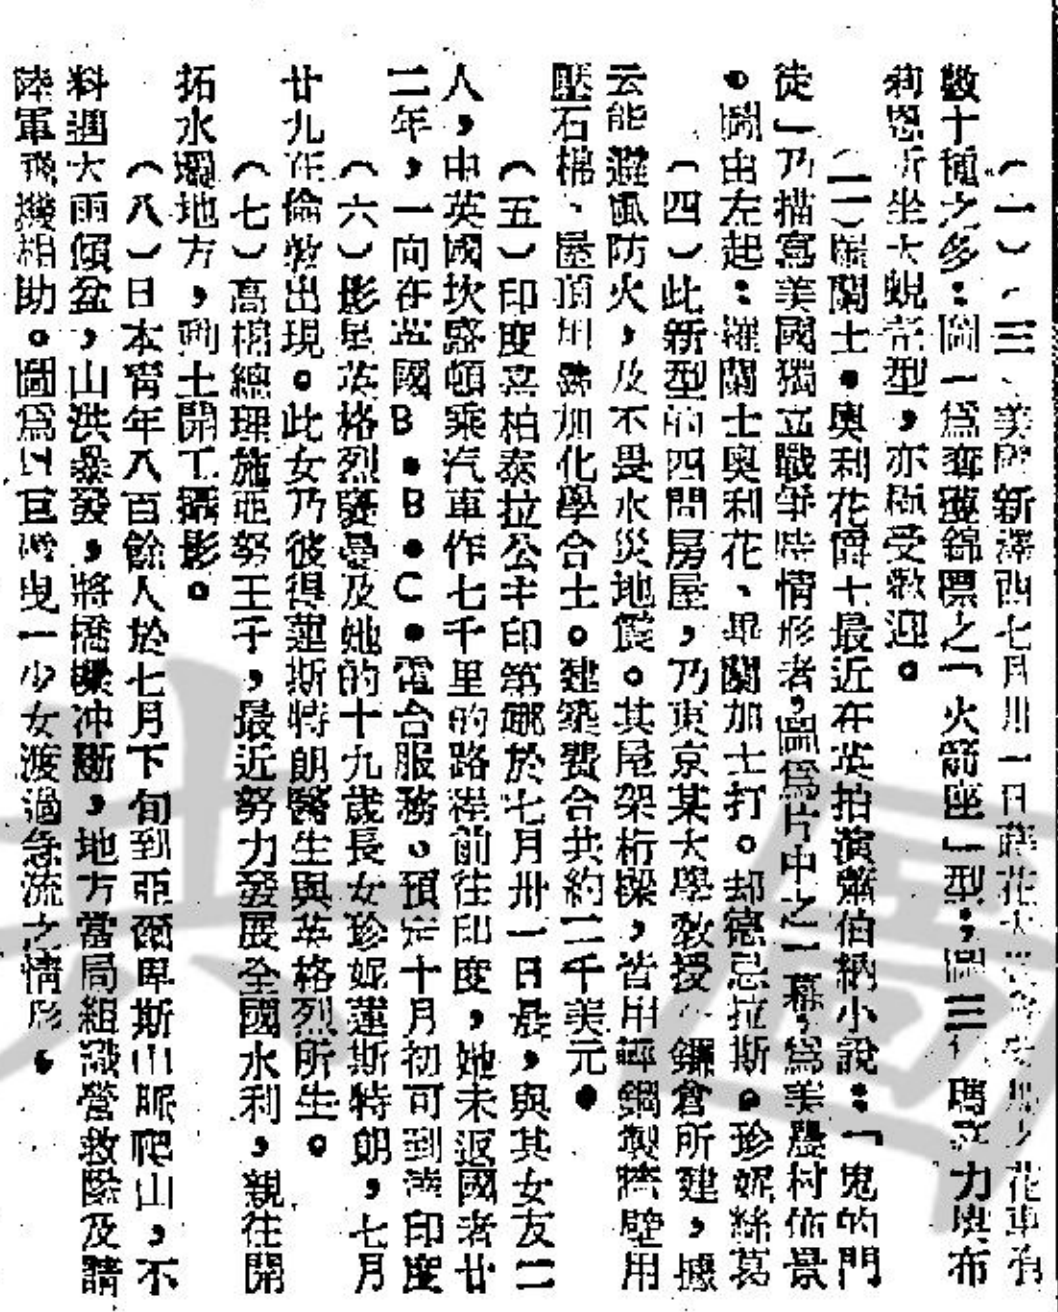 （一）（三）美國新澤西七月卅一日花車有
數十種之多：圖一爲奪獲錦標之「火箭座」型；圖三、瑪力與布
莉恩所坐大蜆壳型，亦極受歡迎。
（二）羅蘭士·奧利花爵士最近在英拍演蕭伯納小說：「鬼的門
徒」乃描寫美國獨立戰爭時情形者，圖爲片中之一幕，爲美農村佈景
。圖由左起：羅蘭士奧利花、畢蘭加士打。却德忌拉斯。珍妮絲葛
（四）此新型的四間房屋，乃東京某大學教授鐮倉所建，據
云能避風防火，及不畏水災地震。其屋架桁樑，皆用輕鋼製牆壁用
壓石棉、屋頂用加化學合土。建築費合共約二千美元。
（五）印度喜柏泰拉公主印第娜於七月卅一日晨，與其女友二
人，由英國坎盛頓乘汽車作七千里的路程前往印度，她未返國者廿
二年，一向在英國B·B·C·電台服務。預定十月初可到達印度
（六）影星英格烈褒曼及她的十九歲長女珍妮蓮斯特朗，七月
廿九在倫敦出現。此女乃彼得蓮斯特朗醫生與英格烈所生。
（七）高棉總理施亞努王子，最近努力發展全國水利，親往開
拓水壩地方，動土開工攝影。
（八）日本青年八百餘人於七月下旬到亞爾卑斯山脈爬山，不
料遇大雨傾盆，山洪暴發，將橋樑冲斷，地方當局組織營救隊及請
陸軍飛機相助。圖爲以巨繩曳一少女渡過急流之情形。